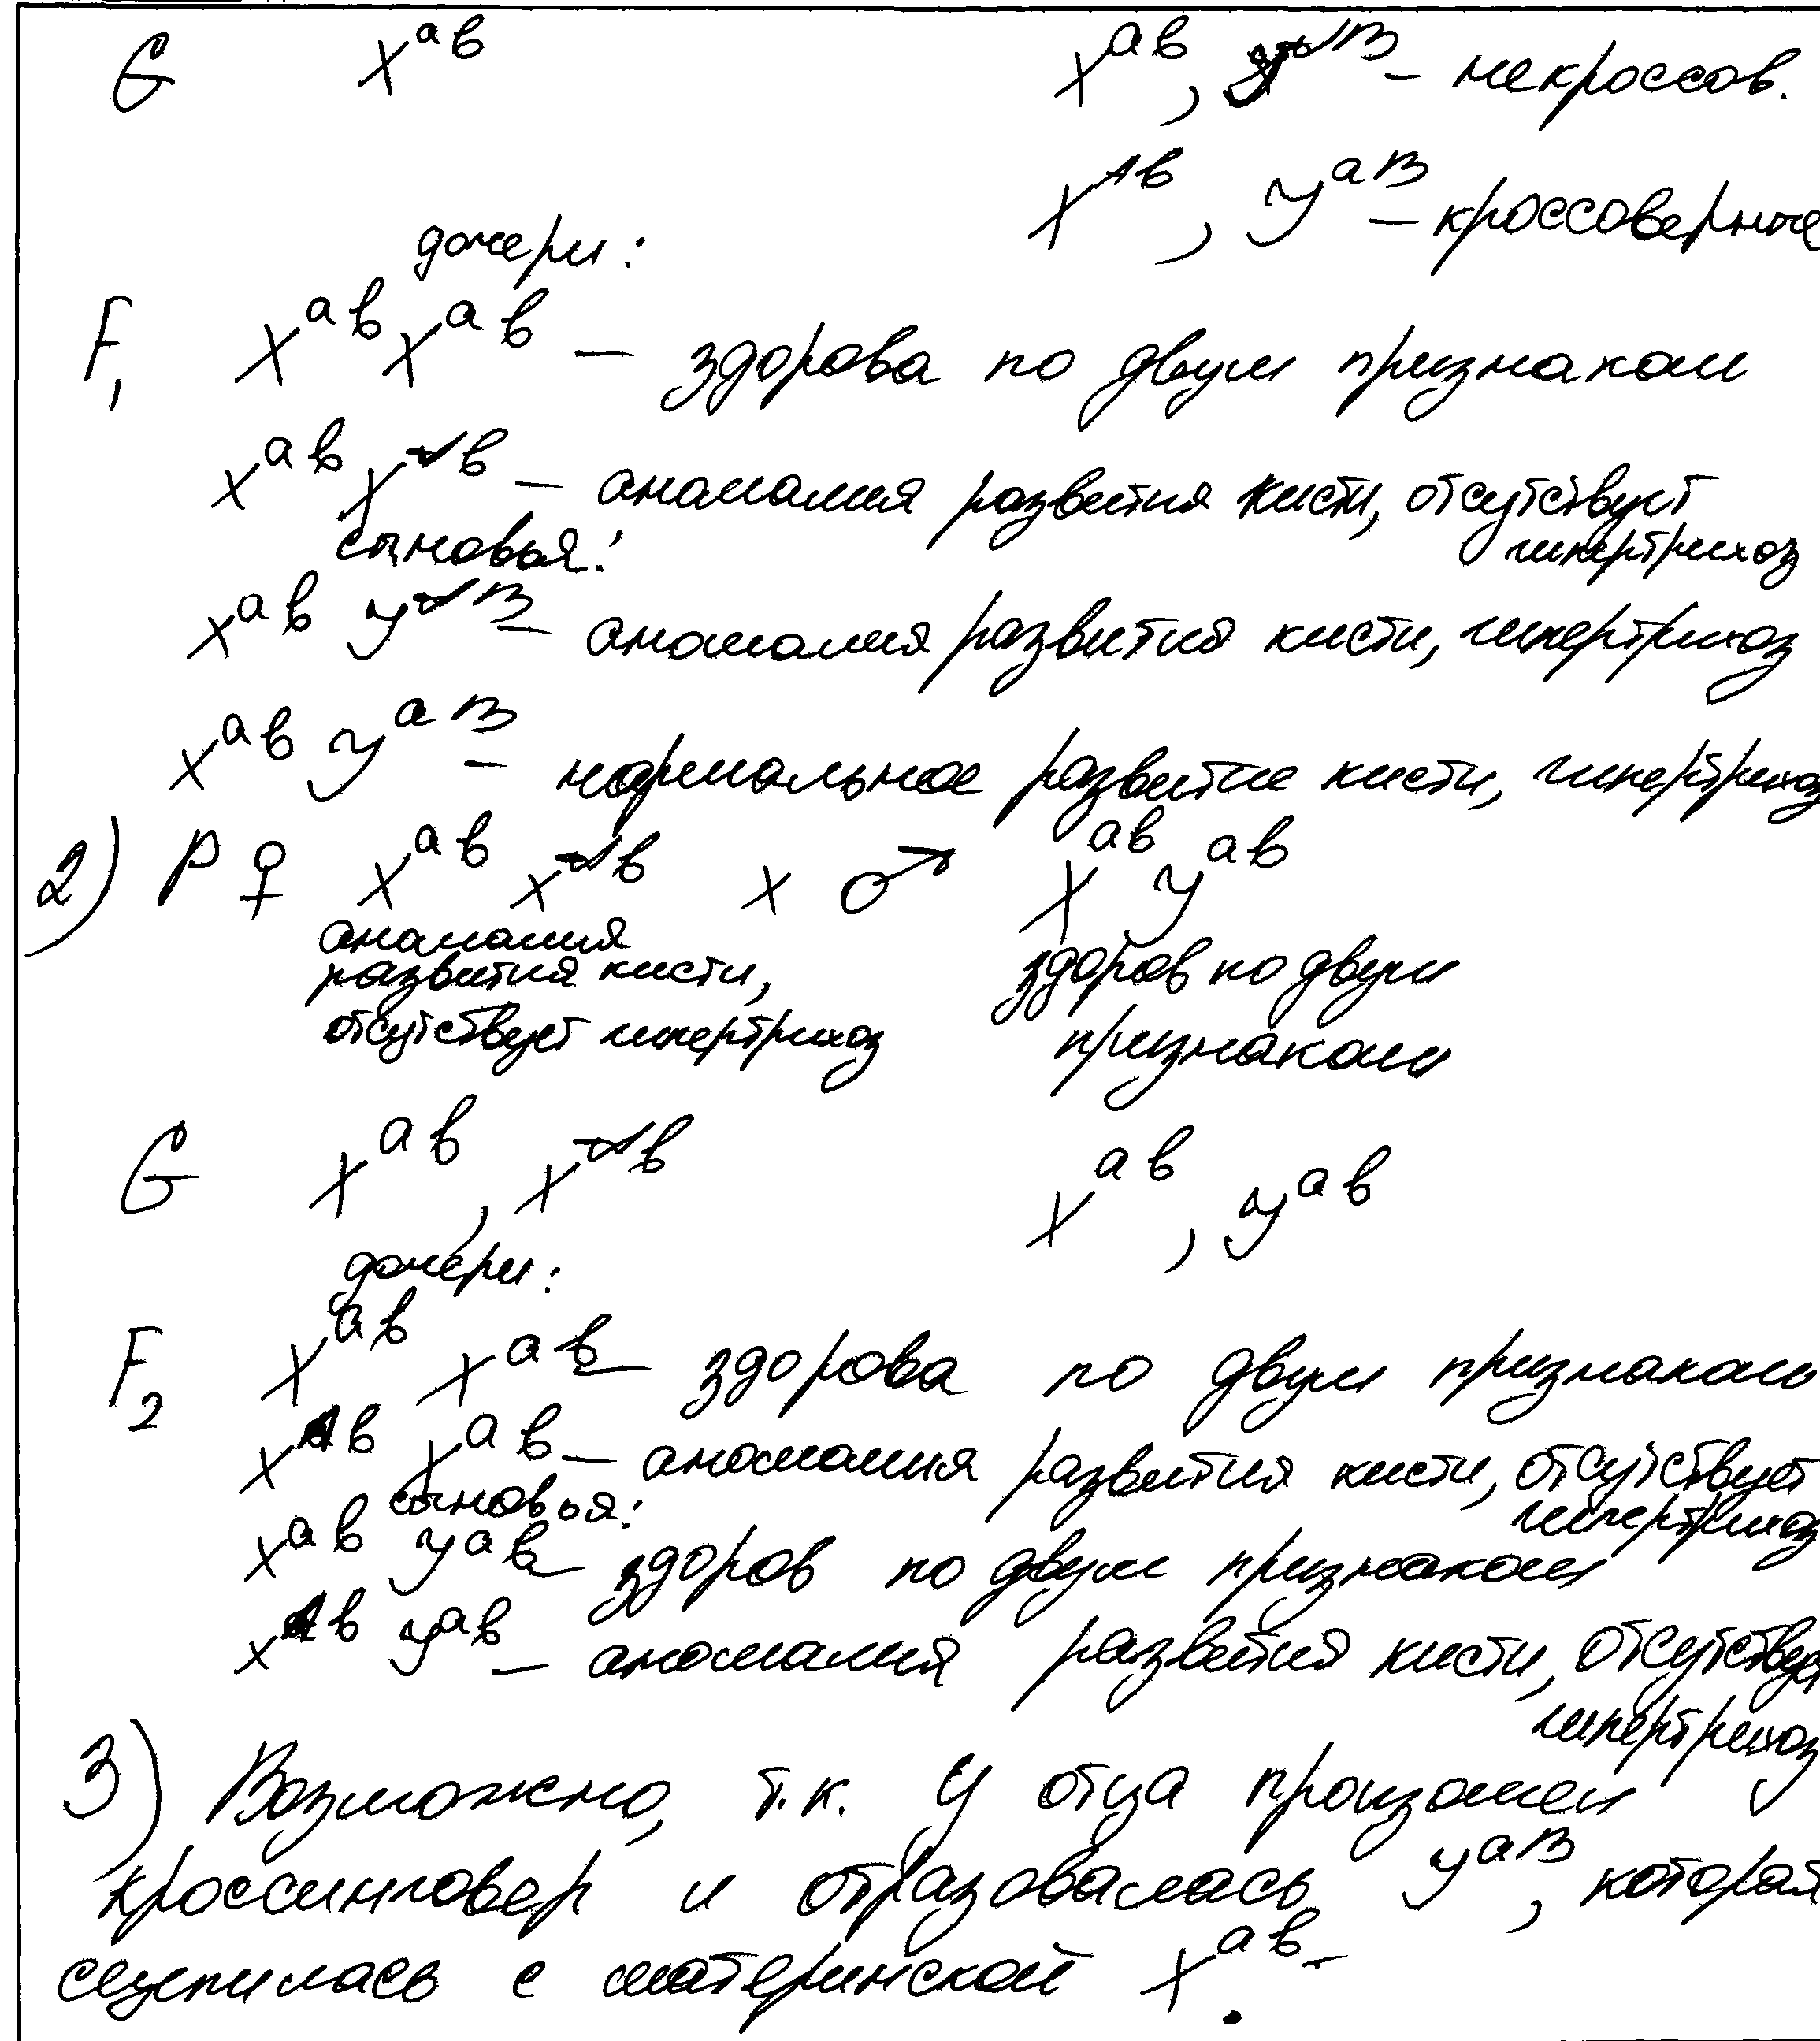 G X^ав X^ав, У^АВ – некроссов.
X^Ав, У^аВ – кроссоверные
дочери:
F₁ X^ав X^ав – здорова по двум признакам
X^ав X^Ав – аномалия развития кисти, отсутствует
гипертрихоз
сыновья:
X^ав У^АВ – аномалия развития кисти, гипертрихоз
X^ав У^аВ – нормальное развитие кисти, гипертрихоз
2) P ♀ X^ав X^Ав x ♂ X^ав У^ав
аномалия
развития кисти, здоров по двум
отсутствует гипертрихоз признакам
G X^ав, X^Ав X^ав, У^ав
дочери:
F₂ X^ав X^ав – здорова по двум признакам
X^Ав X^ав – аномалия развития кисти, отсутствует
гипертрихоз
сыновья:
X^ав У^ав – здоров по двум признакам
X^Ав У^ав – аномалия развития кисти, отсутствует
гипертрихоз
3) Возможно, т.к. у отца произошел
кроссинговер и отразовалась У^аВ, которая
сцепилась с материнской X^ав.